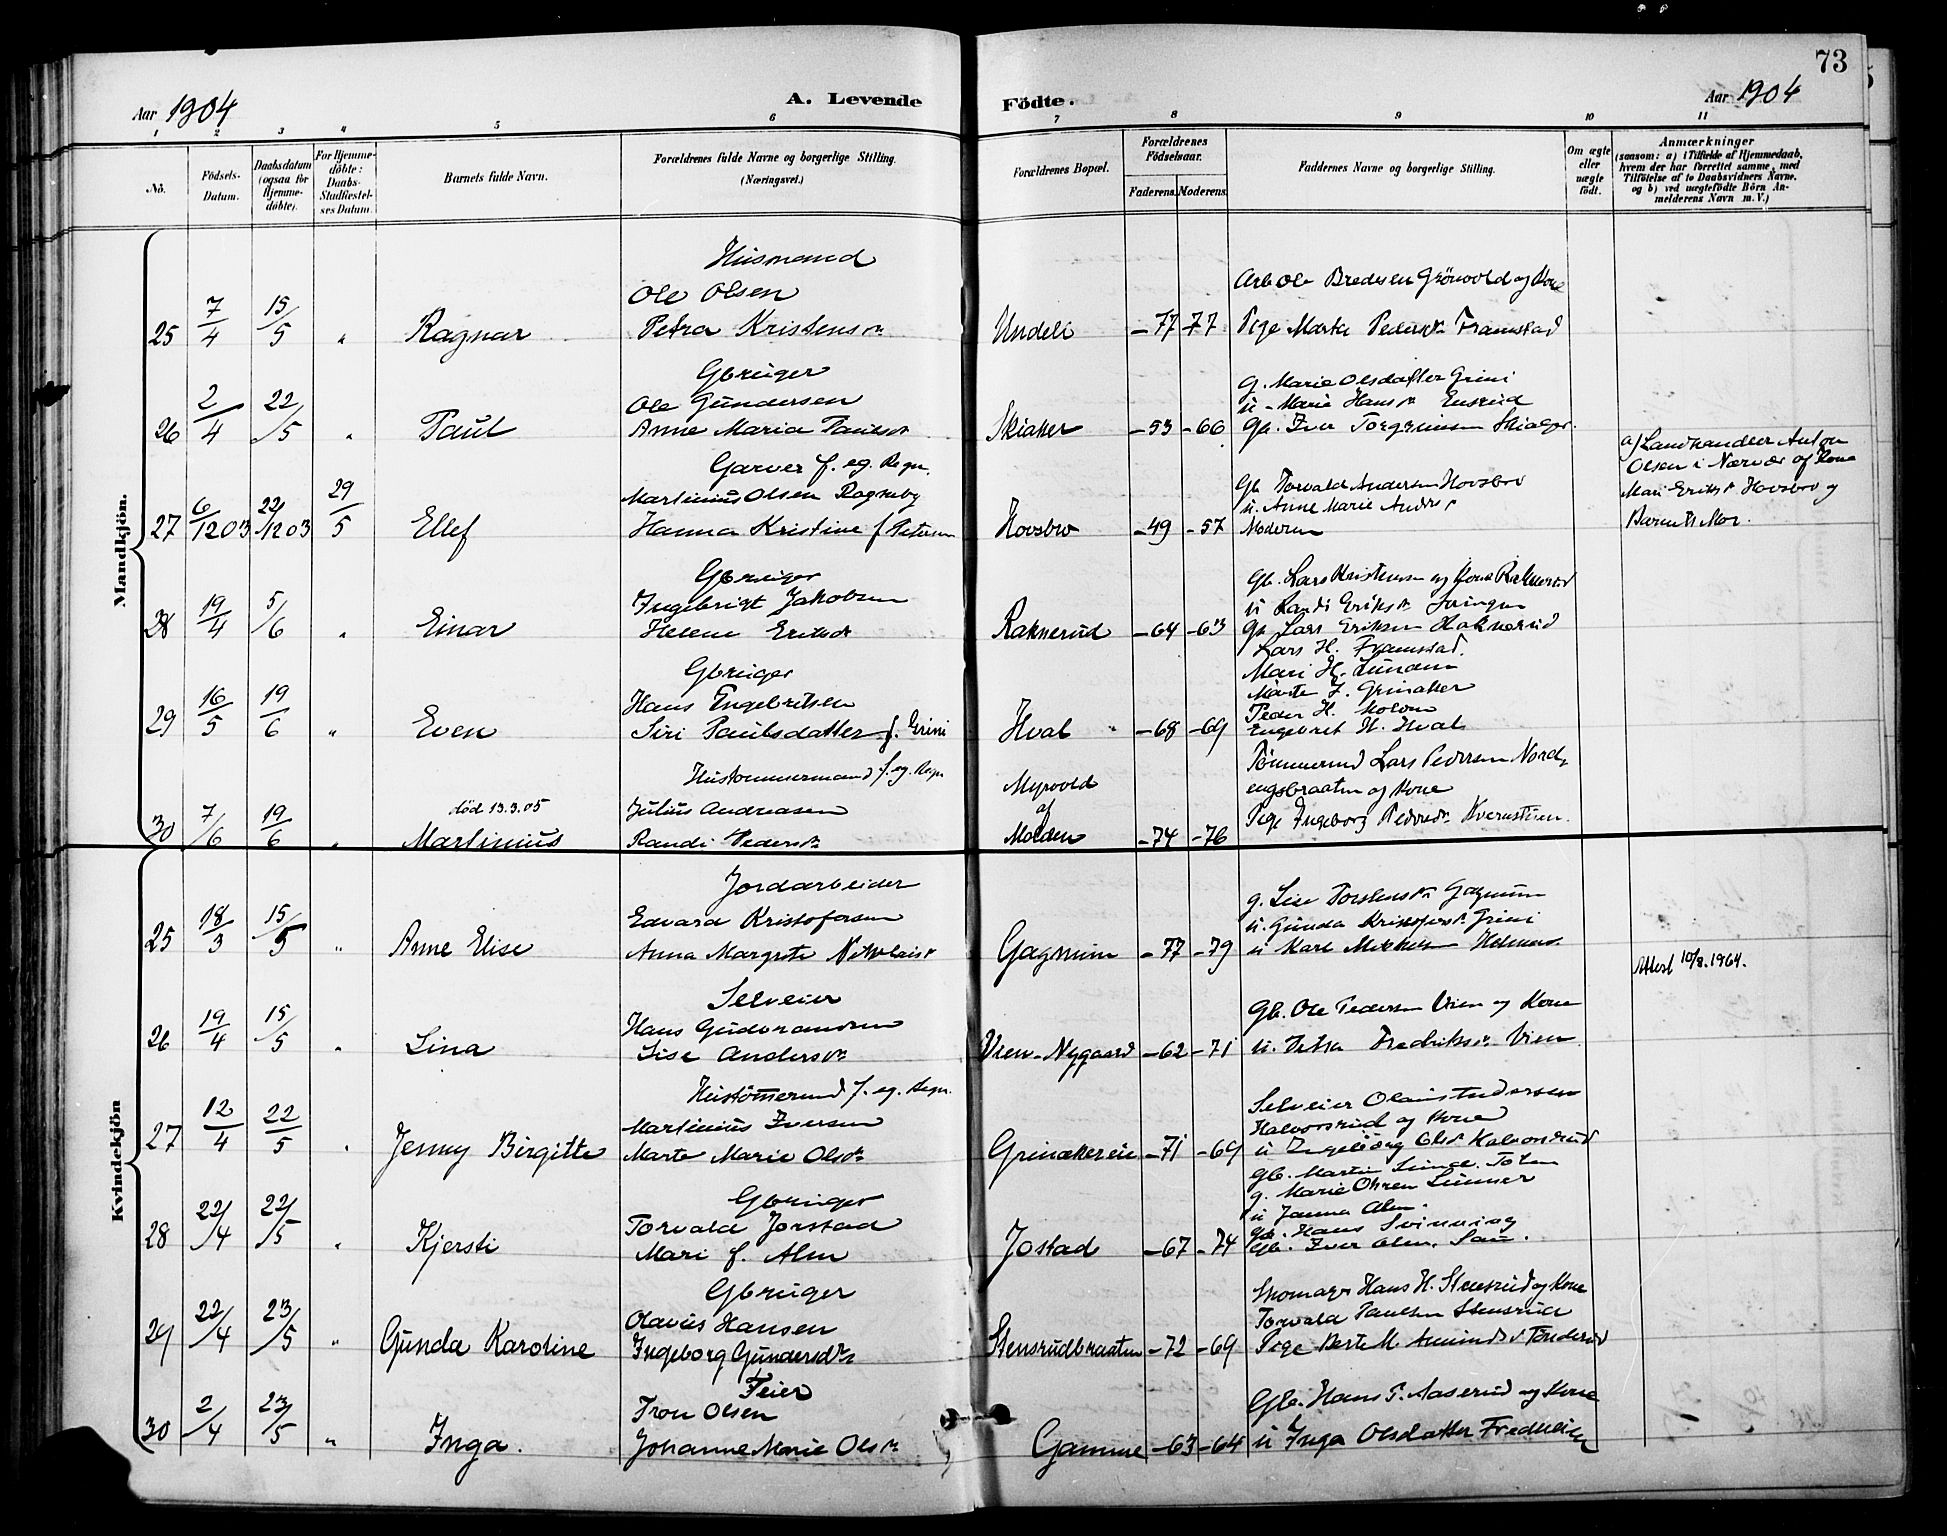 73
Aar 1904
A. Levende
Födte.
Aar 1904
1 2 3 4 5 6 7 8 9 10 11
No.
Födsels-Datum.
Daabsdatum (ogsaa for Hjemme-döbte).
For Hjemme-döbte: Daabs-Stadfæstel-ses Datum.
Barnets fulde Navn.
Forældrenes fulde Navne og borgerlige Stilling.
(Næringsvei.)
Forældrenes Bopæl.
Forældrenes Födselsaar.
Faderens. Moderens.
Faddernes Navne og borgerlige Stilling.
Om ægte eller uægte födt.
Anmærkninger
(saasom: a) i Tilfælde af Hjemmedaab,
hvem der har forrettet samme, med
Tilföielse af to Daabsvidners Navne,
og b) ved uægtefödte Börn An-
melderens Navn m. V.)
Mandkjön.
Husmand
Ole Olsen
Arb Ole Bredesen Grönvold og Kone
25 7/4 15/5 " Ragnar Petra Kristensdr Undeli -77 77 Pige Marta Pedersdr Framstad
Gbruger
g. Marie Olsdatter Grini
Ole Gundersen
u. Marie Hansdr Ensrud
26 2/4 22/5 " Paul Anne Maria Paulsdr Skiaker -53 -66 Gb. Iver Torgrimsen Skiager.
Garver f. eg. Regn.
a) Landhandler Anton
Olsen i Nærvær af Kone
Martinius Olsen Rogneby
Gb. Torvald Andersen Hovsbro
u. Anne Marie Andrsd
Mari Eriksd Hovsbro og
27 6/12 03 22/12 03 29/5 Ellef Hanna Kristine f Petersen Hovsbro -49 -57 Moderen
Barnets Mor.
Gbruger
Gb. Lars Kristensen og Kone Raknerud
Ingebrigt Jakobsen
u Randi Eriksdr
28 19/4 5/6 " Einar Helene Eriksdr Raknerud -64 -63 Gb. Lars Eriksen Raknerud
Lars H. Framstad.
Gbruger
Mari H. Lunden
Hans Engebretsen
Marte J. Grinaker
Peder H. Molden
29 16/5 19/6 " Even Siri Paulsdatter f. Grini Hval -68 -69 Engebret H. Hval
Hustømmermand f. eg. Regn
Tömmermd Lars Pedersen Nord-
Myrvold
engsbraaten og Kone
død 13.3.05
Julius Andreasen
af
30 7/6 19/6 " Martinius Randi Pedersdr Molden -74 -76 Pige Ingeborg Pedersdr Kvernstuen.
Kvindekjön
Jordarbeider
g. Lise Torstensdr Gagnum
Edvard Kristofersen
u. Gunda Kristofersdr Grini
25 18/3 15/5 " Anne Elise Anna Margrete Nikolaisd Gagnum -77 -79 u Karl Mikkelsen
Attest 10/8.1964.
Selveier
Gb. Ole Pedersen Vien og Kone
Hans Gudbrandsen
26 19/4 15/5 " Lina Lise Andersdr Vien-Nygaard -62 -71 u. Petra Fredriksdr Vien
Hustømmermd f. eg. Regn.
Selveier Olaus Andersen
Martinius Iversen
Halvorsrud og Kone
27 12/4 22/5 " Jenny Birgitte Marte Marie Olsdr Grinakereie -71 -69 u Ingeborg Olsd Halvorsrud
Gb. Martin Lunde. Toten
Gbruger
g. Marie Ohren Lunner
u Janna Alm.
Torvald Jorstad
Gb. Hans Svinning
28 22/4 22/5 " Kjersti Mari f. Alm Jostad -67 -74 Gb. Iver Alm.
Gbruger
Skomager Hans H. Stensrud og Kone
Olavus Hansen
Torvald Paulsen Stensrud
29 22/4 23/5 " Gunda Karoline Ingeborg Gundersdr Stensrudbraaten -72 -69 Pige Berte M. Amundsd
Feier
Gb. Hans P. Aaserud og Kone
Tron Olsen
30 2/4 23/5 " Inga. Johanne Marie Olsdr Gamme -63 -64 u Inga Olsdatter